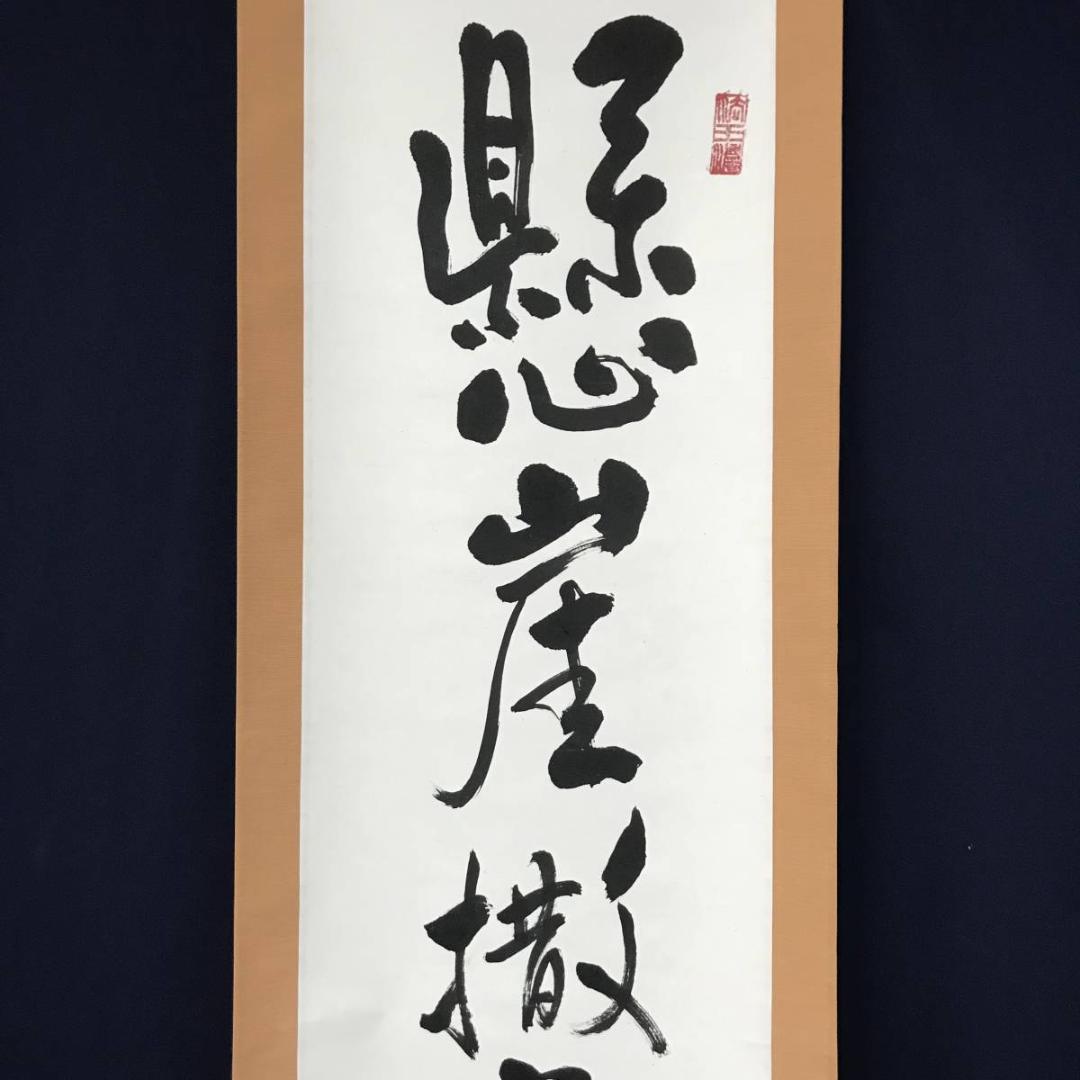 懸崖撒